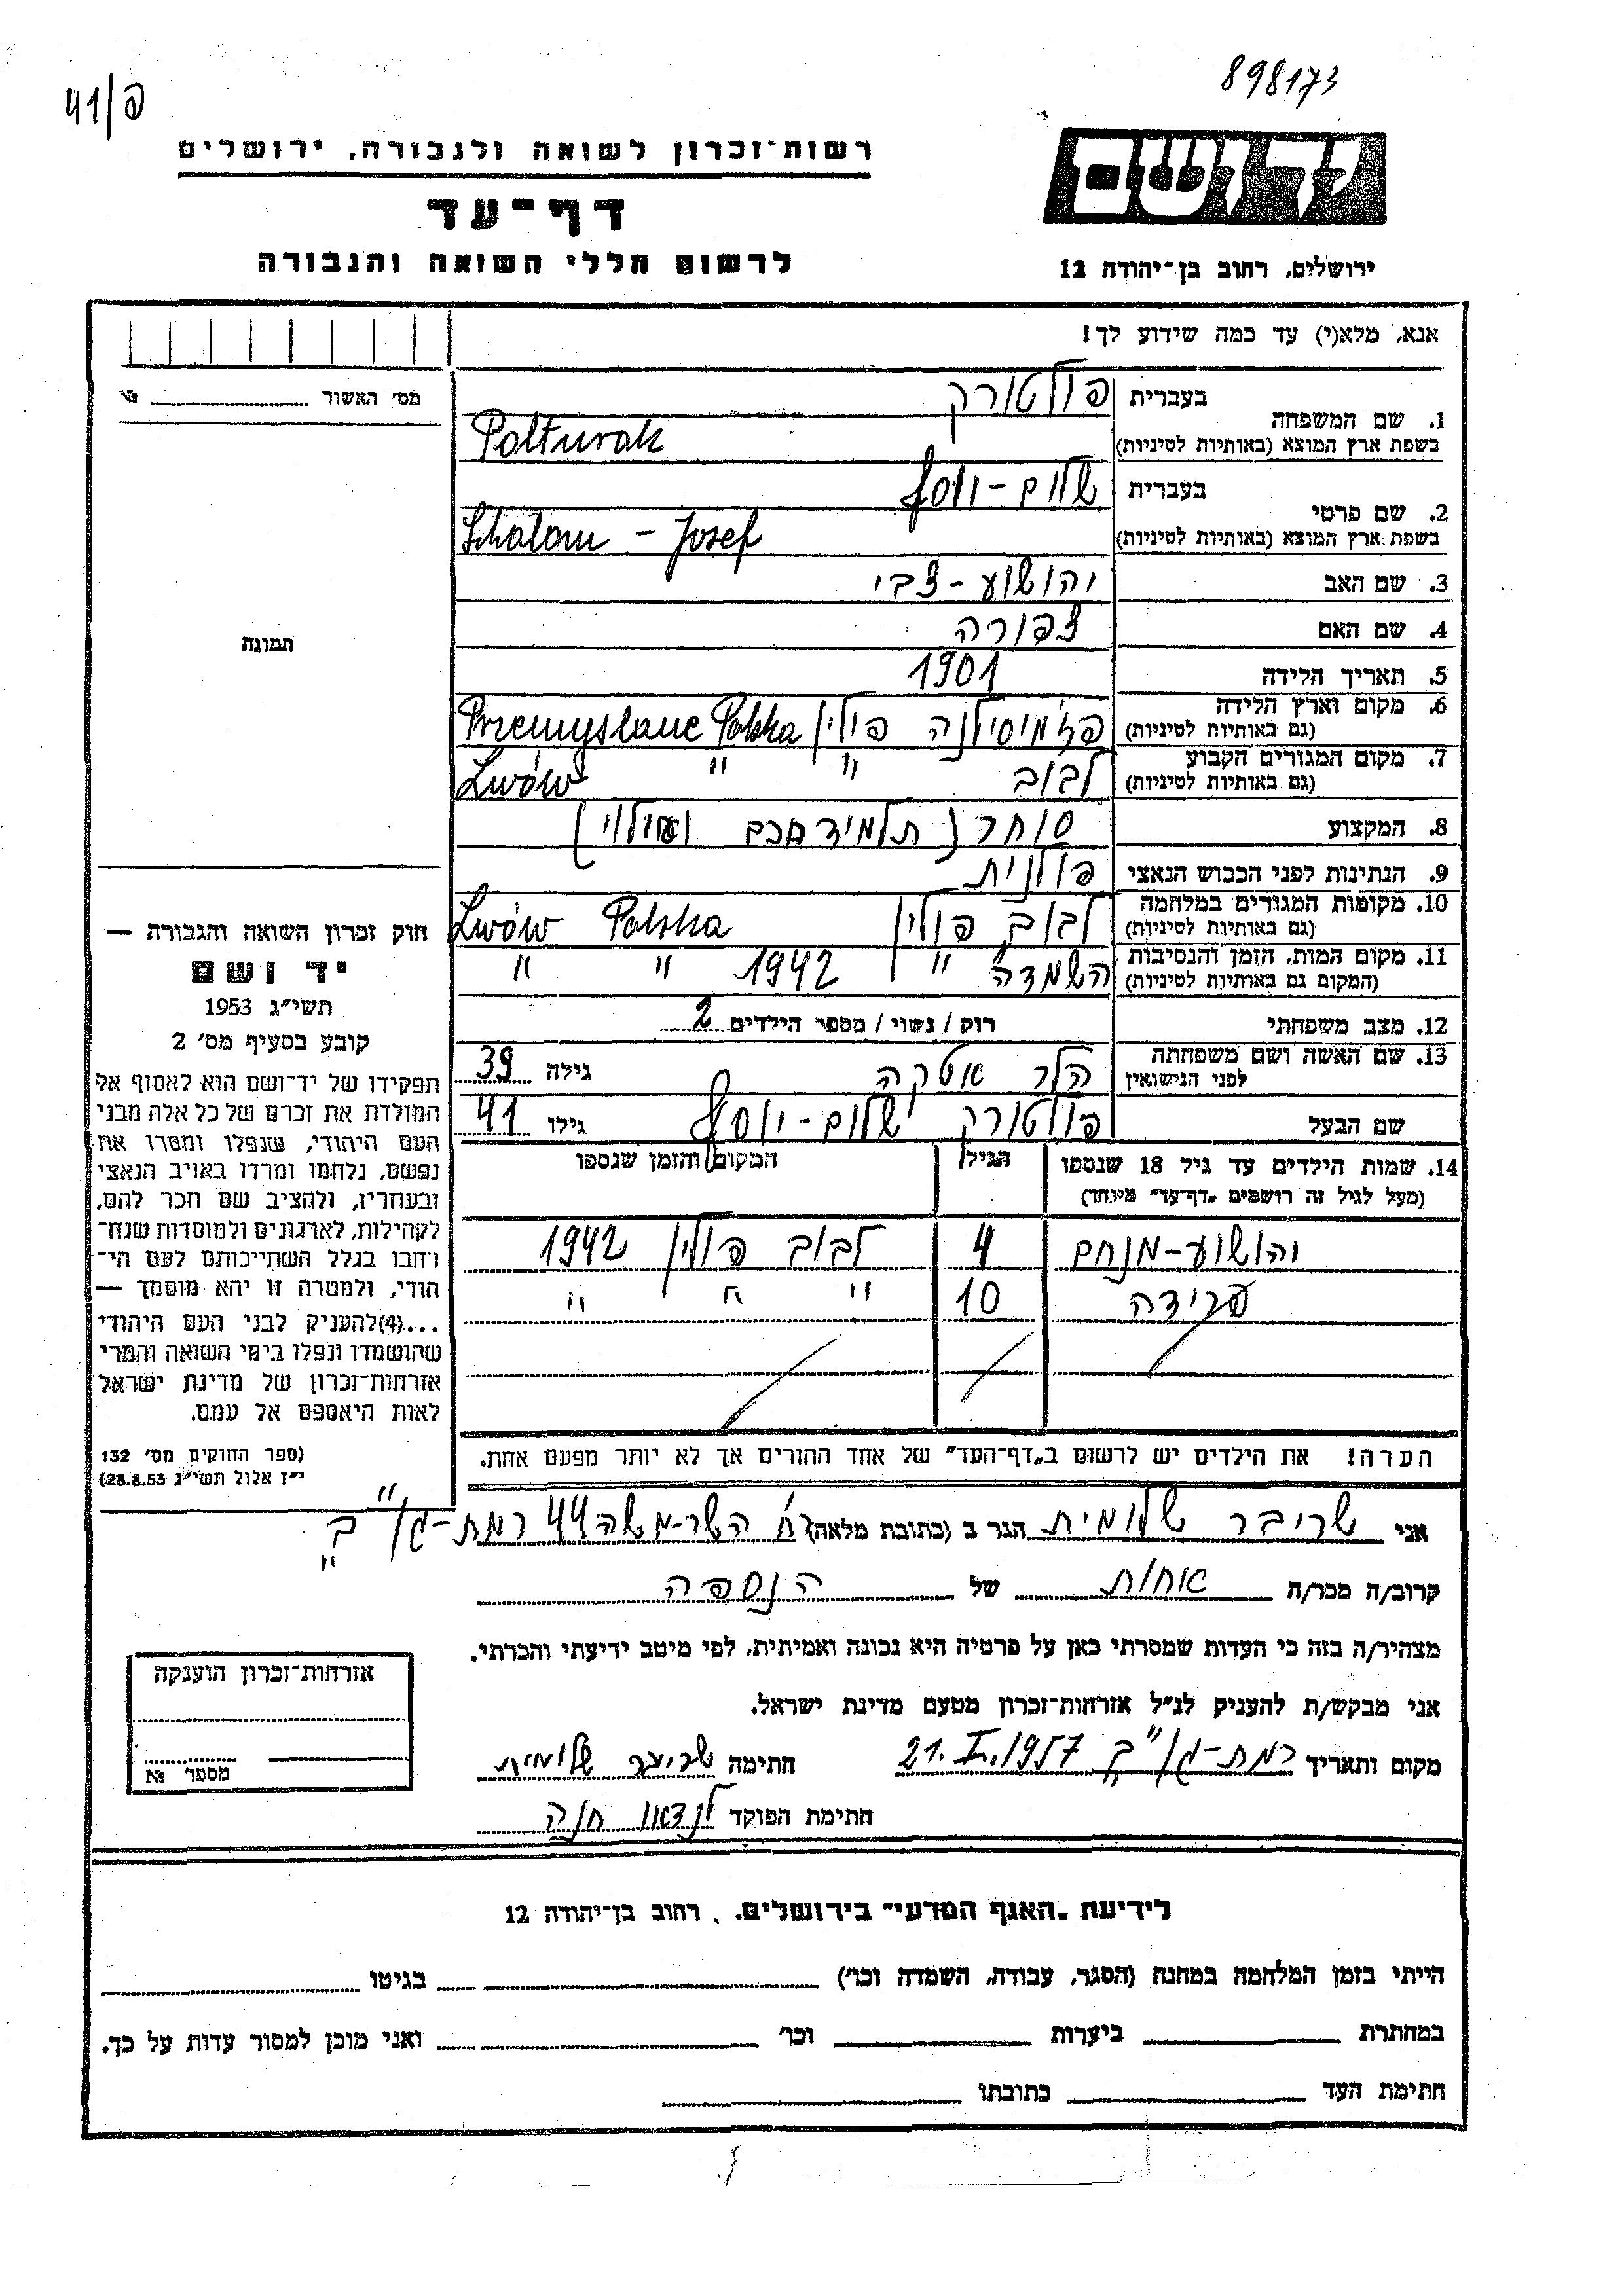 898173
פ/41
יד ושם
ירושלים, רחוב בן־יהודה 12
רשות־זכרון לשואה ולגבורה, ירושלים
דף־עד
לרשום חללי השואה והגבורה
אנא, מלא(י) עד כמה שידוע לך!
מס׳ האשור № 
1. שם המשפחה בעברית פולטורק
בשפת ארץ המוצא (באותיות לטיניות) Polturak
2. שם פרטי בעברית שלום-יוסף
בשפת ארץ המוצא (באותיות לטיניות) Schalom - Josef
3. שם האב יהושוע-צבי
4. שם האם צפורה
5. תאריך הלידה 1901
6. מקום וארץ הלידה (גם באותיות לטיניות) פז'מיסילנה פולין Przemyslane Polska
7. מקום המגורים הקבוע (גם באותיות לטיניות) לבוב " " Lwów
8. המקצוע סוחר (תלמיד חכם ועילוי)
9. הנתינות לפני הכבוש הנאצי פולנית
10. מקומות המגורים במלחמה (גם באותיות לטיניות) לבוב פולין Lwów Polska
11. מקום המות, הזמן והנסיבות (המקום גם באותיות לטיניות) השמדה " 1942 " "
12. מצב משפחתי רוק / נשוי / מספר הילדים 2
13. שם האשה ושם משפחתה לפני הנישואין הלר אטקה גילה 39
שם הבעל פולטורק שלום-יוסף גילו 41
14. שמות הילדים עד גיל 18 שנספו הגיל המקום והזמן שנספו
(מעל לגיל זה רושמים „דף־עד" מיוחד)
יהושוע-מנחם 4 לבוב פולין 1942
פרידה 10 " " "
הערה! את הילדים יש לרשום ב„דף־העד" של אחד ההורים אך לא יותר מפעם אחת.
תמונה
חוק זכרון השואה והגבורה —
יד ושם
תשי״ג 1953
קובע בסעיף מס׳ 2
תפקידו של יד־ושם הוא לאסוף אל
המולדת את זכרם של כל אלה מבני
העם היהודי, שנפלו ומסרו את
נפשם, נלחמו ומרדו באויב הנאצי
ובעוזריו, ולהציב שם וזכר להם,
לקהילות, לארגונים ולמוסדות שנח־
רבו בגלל השתייכותם לעם הי־
הודי, ולמטרה זו יהא מוסמך —
...(4)להעניק לבני העם היהודי
שהושמדו ונפלו בימי השואה והמרי
אזרחות־זכרון של מדינת ישראל
לאות היאספם אל עמם.
(ספר החוקים מס׳ 132
י״ז אלול תשי״ג 28.8.53)
אני שרייבר שלומית הגר ב (כתובת מלאה) רח' השר-משה 44 רמת-גן ב
קרוב/ה מכר/ה אחות של הנספה
מצהיר/ה בזה כי העדות שמסרתי כאן על פרטיה היא נכונה ואמיתית, לפי מיטב ידיעתי והכרתי.
אני מבקש/ת להעניק לנ״ל אזרחות־זכרון מטעם מדינת ישראל.
מקום ותאריך רמת-גן ב 21.I.1957 חתימה שרייבר שלומית
חתימת הפוקד לנדאו חנה
אזרחות־זכרון הוענקה
מספר №
לידיעת „האגף המדעי" בירושלים, רחוב בן־יהודה 12
הייתי בזמן המלחמה במחנה (הסגר, עבודה, השמדה וכו׳) בגיטו
במחתרת ביערות וכו׳ ואני מוכן למסור עדות על כך.
חתימת העד כתובתו